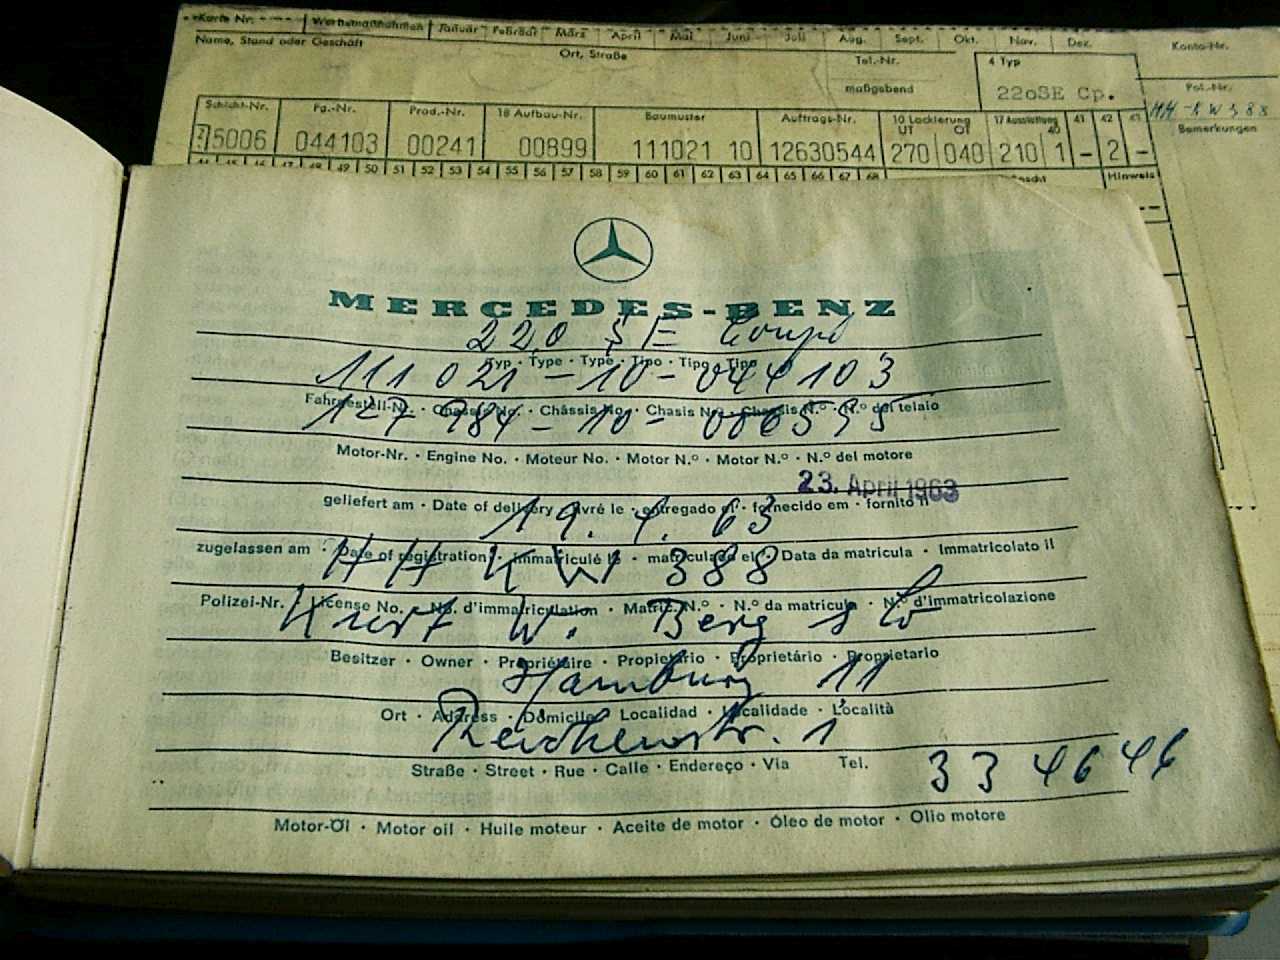 Karte Nr. Werbemaßnahmen Januar Februar März April Mai Juni Juli Aug. Sept. Okt. Nov. Dez. Konto-Nr.
Name, Stand oder Geschäft Ort, Straße Tel.-Nr. 4 Typ Pol.-Nr.
maßgebend 220SE Cp.
Schicht-Nr. Fg.-Nr. Prod.-Nr. 18 Aufbau-Nr. Baumuster Auftrags-Nr. 10 Lackierung 17 Ausstattung 41 42 43 Bemerkungen
UT OT 40
5006 044103 00241 00899 111021 10 12630544 270 040 210 1 - 2 -
44 45 46 47 48 49 50 51 52 53 54 55 56 57 58 59 60 61 62 63 64 65 66 67 68 Hinweis
MERCEDES-BENZ
220 SE Coupé
Typ · Type · Type · Tipo · Tipo · Tipo
111 021 - 10 - 044103
Fahrgestell-Nr. · Chassis No. · Châssis No. · Chasis N.º · Chassis N.º · N.º del telaio
127 984 - 10 - 006595
Motor-Nr. · Engine No. · Moteur No. · Motor N.º · Motor N.º · N.º del motore
23. April 1963
geliefert am · Date of delivery · livré le · entregado el · fornecido em · fornito il
19. 4. 63
zugelassen am · Date of registration · immatriculé le · matriculado el · Data da matricula · Immatricolato il
HH KW 388
Polizei-Nr. · License No. · No. d'immatriculation · Matric. N.º · N.º da matricula · N.º d'immatricolazione
Kurt W. Berg & Co
Besitzer · Owner · Propriétaire · Propietario · Proprietário · Proprietario
Hamburg 11
Ort · Address · Domicile · Localidad · Localidade · Località
Reichenstr. 1
Straße · Street · Rue · Calle · Endereço · Via Tel. 33 46 46
Motor-Öl · Motor oil · Huile moteur · Aceite de motor · Óleo de motor · Olio motore